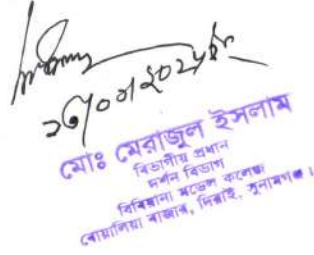 মোঃ মেরাজুল ইসলাম
বিভাগীয় প্রধান
দর্শন বিভাগ
বিবিয়ানা মডেল কলেজ
বোয়ালিয়া বাজার, দিরাই, সুনামগঞ্জ।